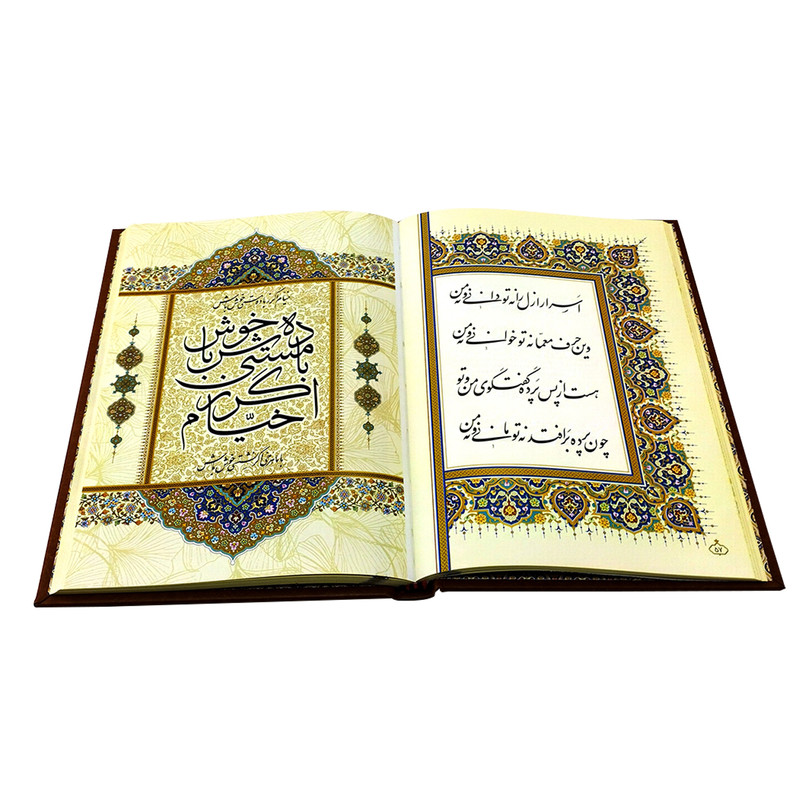 اسرار ازل را نه تو دانی و نه من
وین حرف معمّا نه تو خوانی و نه من
هست از پس پرده گفتگوی من و تو
چون پرده برافتد نه تو مانی و نه من
۵۷
خیام اگر ز باده مستی خوش باش
خیّام اگر ز باده مستی خوش باش
با ماهرخی اگر نشستی خوش باش